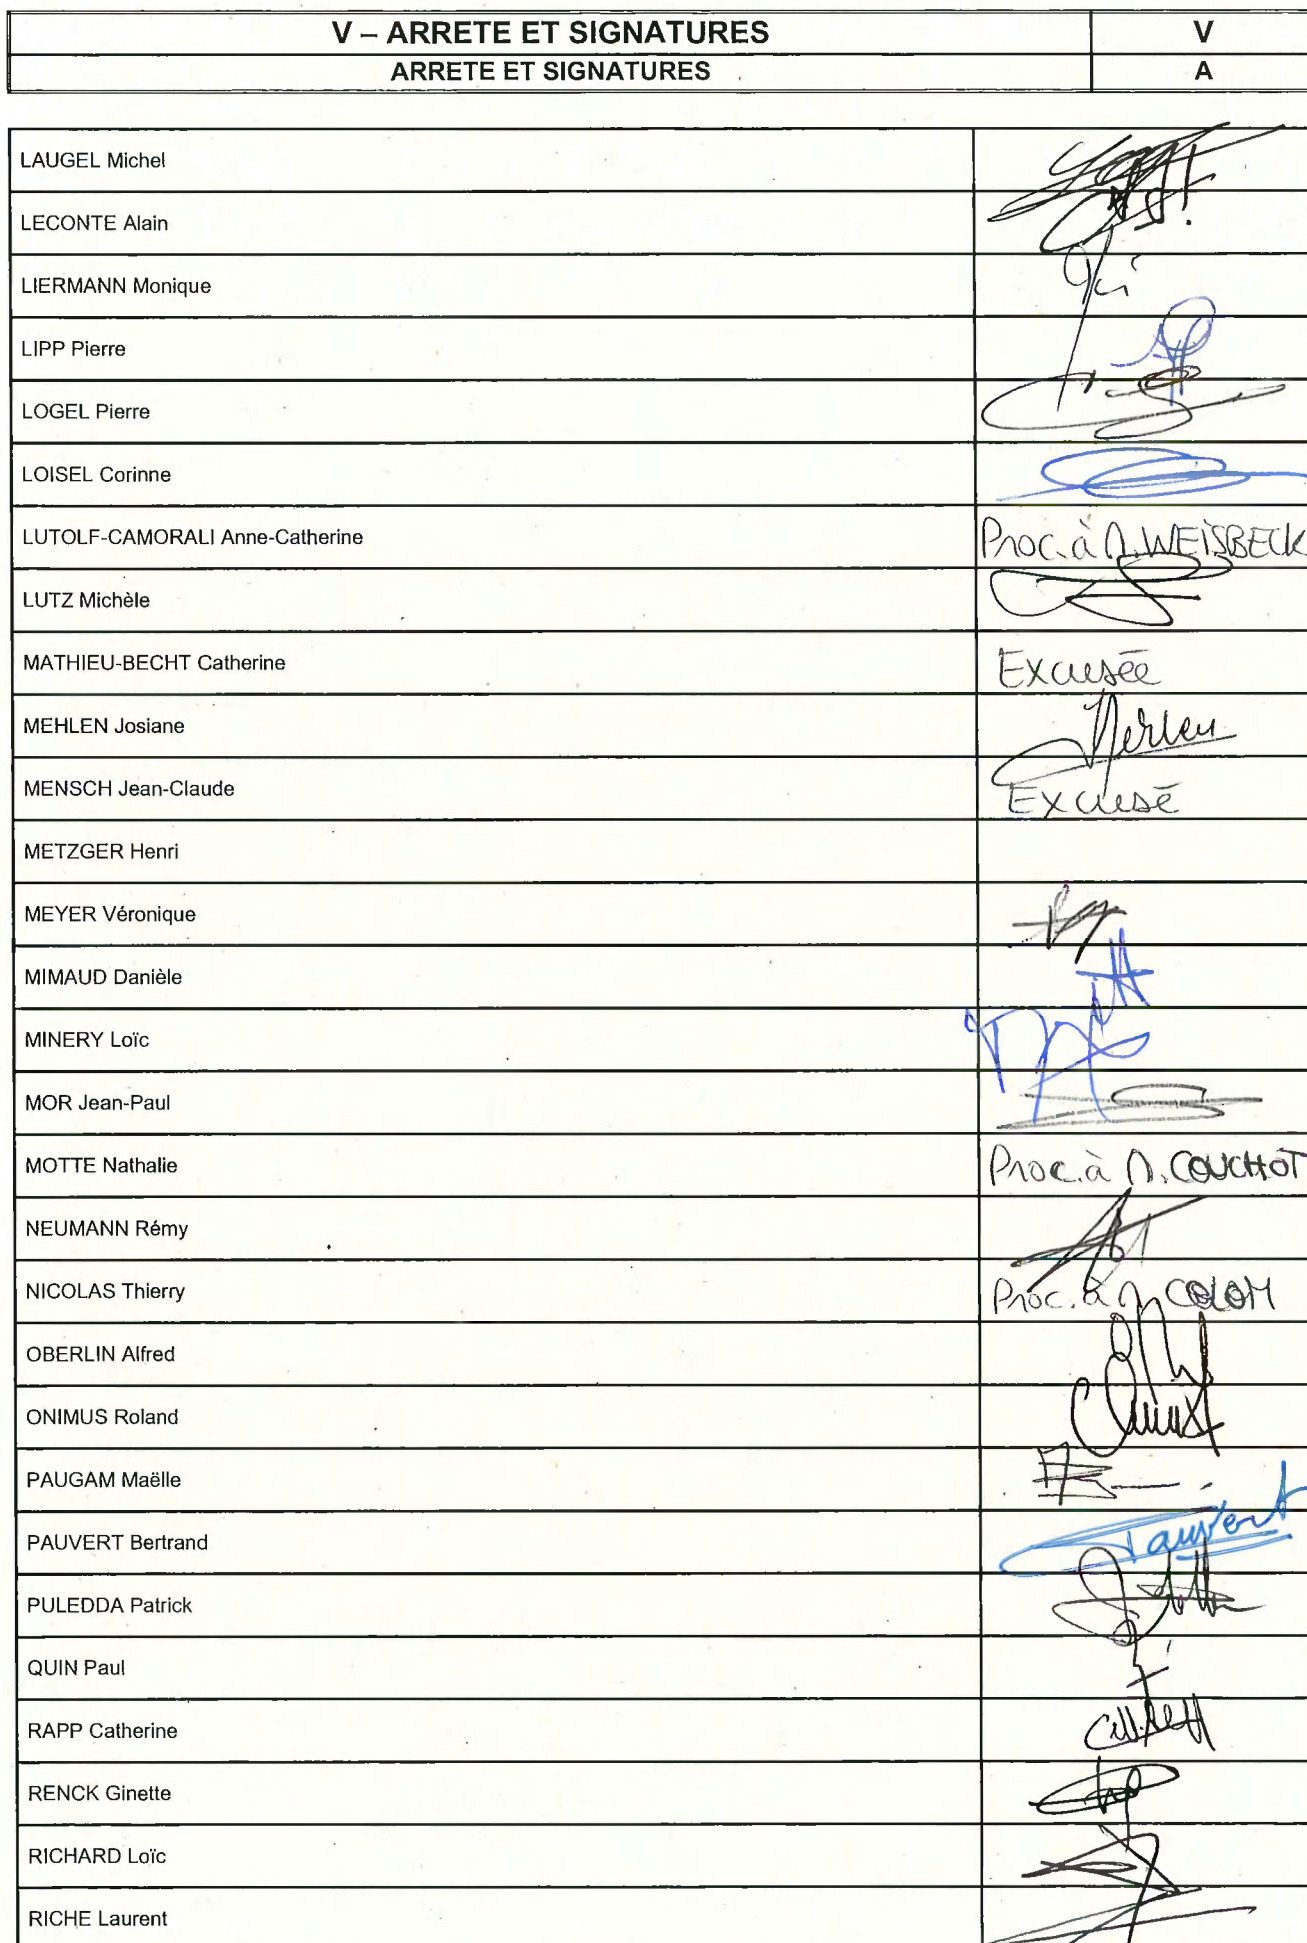 V – ARRETE ET SIGNATURES V
ARRETE ET SIGNATURES A
LAUGEL Michel
LECONTE Alain
LIERMANN Monique
LIPP Pierre
LOGEL Pierre
LOISEL Corinne
LUTOLF-CAMORALI Anne-Catherine Proc. à M. WEISBECK
LUTZ Michèle
MATHIEU-BECHT Catherine Excusée
MEHLEN Josiane
MENSCH Jean-Claude Excusé
METZGER Henri
MEYER Véronique
MIMAUD Danièle
MINERY Loïc
MOR Jean-Paul
MOTTE Nathalie Proc. à M. COUCHOT
NEUMANN Rémy
NICOLAS Thierry Proc. à M. COLOM
OBERLIN Alfred
ONIMUS Roland
PAUGAM Maëlle
PAUVERT Bertrand Pauvert
PULEDDA Patrick
QUIN Paul
RAPP Catherine
RENCK Ginette
RICHARD Loïc
RICHE Laurent